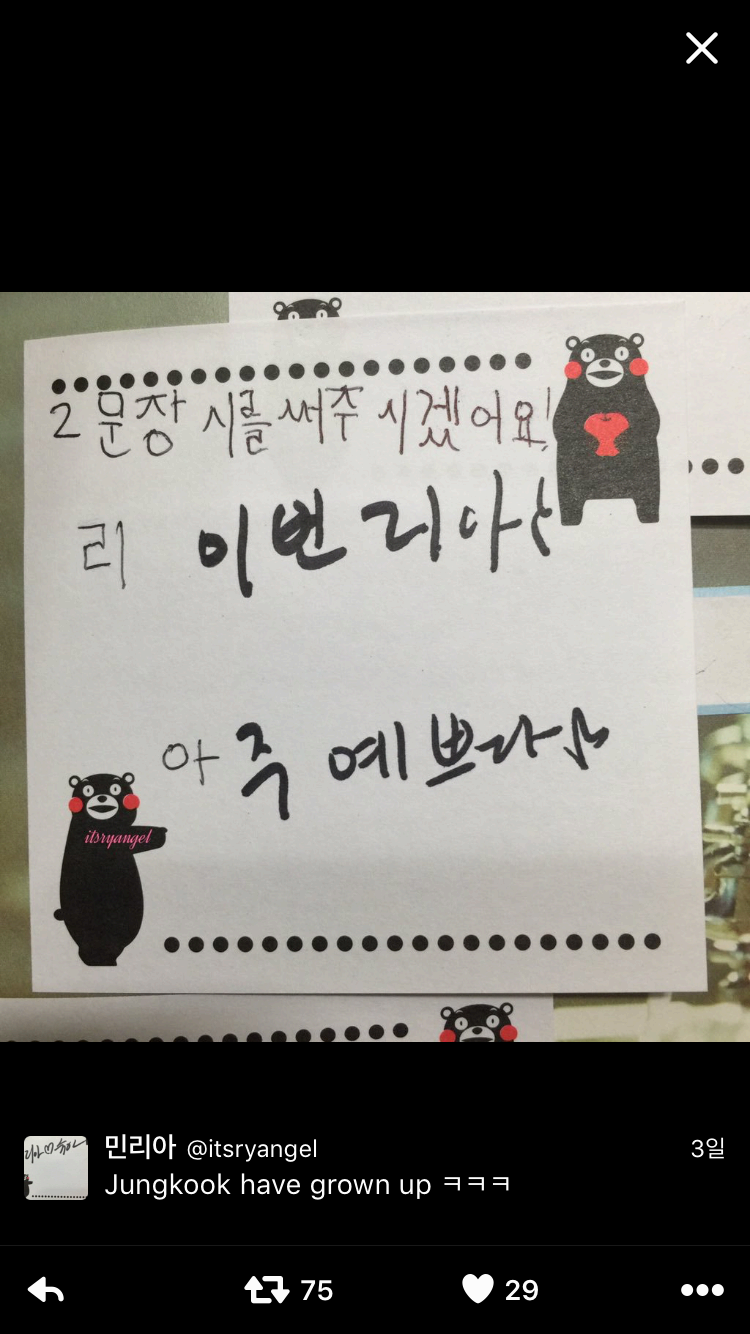 2 문장 시를 써주시겠어요!
리 이번 리아
아주 예쁘다
itsryangel
민리아 @itsryangel 3일
Jungkook have grown up ㅋㅋㅋ
75 29